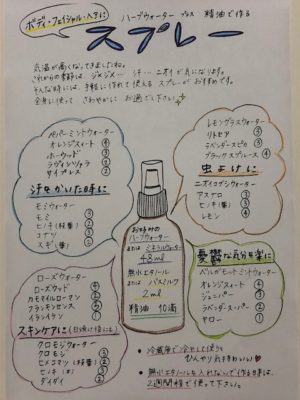 ボディ・フェイシャル・ヘアに
ハーブウォーター プラス 精油で作る
スプレー
気温が高くなってきましたね。
これからの季節は、ジメジメ… 汗… ニオイが気になります。
そんな時には、手軽に作れて使えるスプレーがおすすめです。
全身に使って さわやかに お過ごし下さい
ペパーミントウォーター
オレンジスィート ④
ホーウッド ③
ラヴィンツァラ ②
サイプレス ①
汗をかいた日に
モミウォーター
モミ ③
ヒノキ(枝葉) ②
コナツ
スギ(葉) ②
レモングラスウォーター
リトセア ③
ラベンダースピカ ③
ブラックスプルース ④
虫よけに
ニオイコブシウォーター
アスナロ ③
ヒノキ(葉) ③
レモン ④
お好みの
ハーブウォーター
または ミネラルウォーター
48ml
無水エタノール
または バスミルク
2ml
精油 10滴
憂鬱な気分を楽に
ベルガモットミントウォーター
オレンジスィート ④
ジュニパー ③
ラベンダースーパー ②
ヤロー ①
ローズウォーター
ローズウッド ④
カモマイルローマン ②
フランキンセンス ③
イランイラン ①
スキンケアに(日焼け後にも)
クロモジウォーター
クロモジ ③
ヒメコマツ(枝葉) ②
ヒノキ
ダイダイ ②
・冷蔵庫で冷やして使うと
ひんやりきもちいい♥
・無水エタノールを入れないで作る日は、
2週間程で使って下さい。